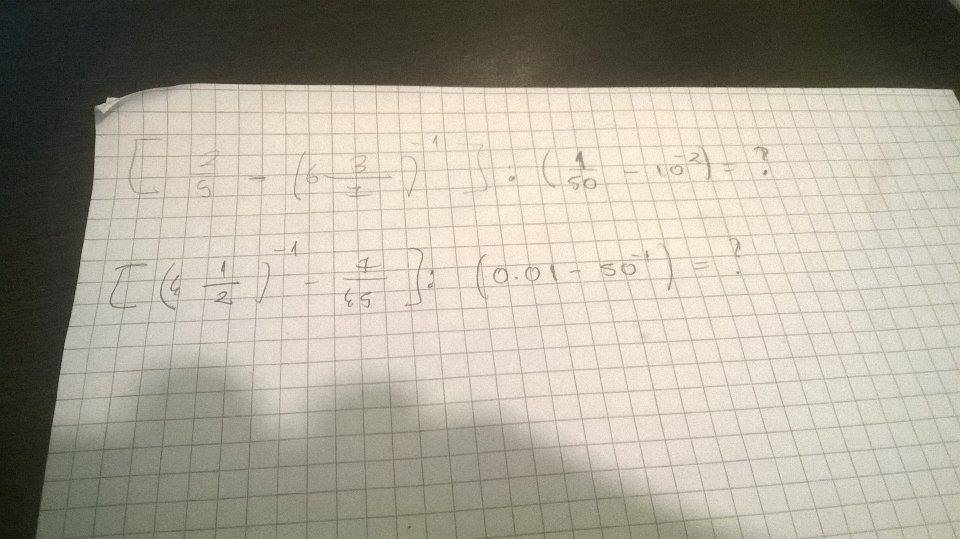 [ 2/5 - (6 3/7)^-1 ] : (1/50 - 10^-2) = ?
[ (4 1/2)^-1 - 7/45 ] : (0.01 - 50^-1) = ?